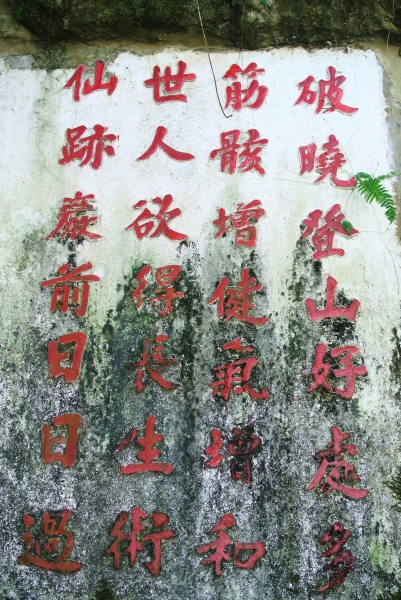 破曉登山好處多
筋骸增健氣增和
世人欲得長生術
仙跡巖前日日過